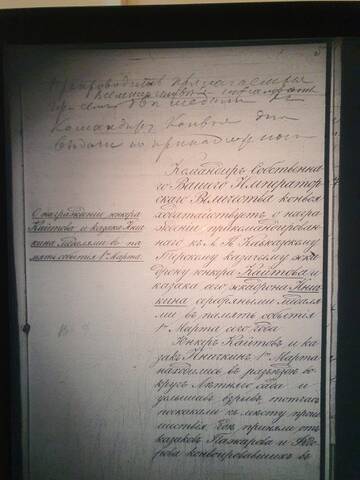 Препроводить прилагаемыя
при семъ две медали
Командиру Конвоя для
выдачи по принадлежности
О награжденіи юнкера
Кайтова и казака Кни-
жкина медалями въ па-
мять событія 1го Марта.
Командиръ Собственна-
го Вашего Император-
скаго Величества конвоя
ходатайствуетъ о награ-
жденіи прикомандированн-
наго къ Л. Гв. Кавказскому
Терскому казачьему эска-
дрону юнкера Кайтова и
казака сего эскадрона Кни-
жкина серебряными медаля-
ми въ память событія
1го Марта сего года
Юнкеръ Кайтовъ и ка-
закъ Книжкинъ 1го Марта
находились въ разъѣздѣ во-
кругъ Лѣтняго сада и
услышавъ взрывъ, тотчасъ
поскакали къ мѣсту прои-
шествія, гдѣ, приняли отъ
казаковъ Мачарова и
конвоировавшихъ въ